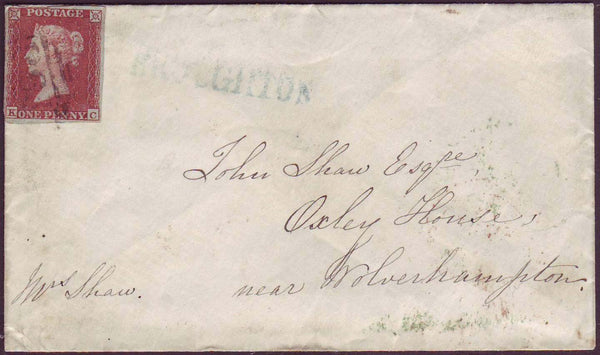 POSTAGE
K ONE PENNY C
BROUGHTON
John Shaw Esqre
Oxley House,
near Wolverhampton.
Mrs Shaw.